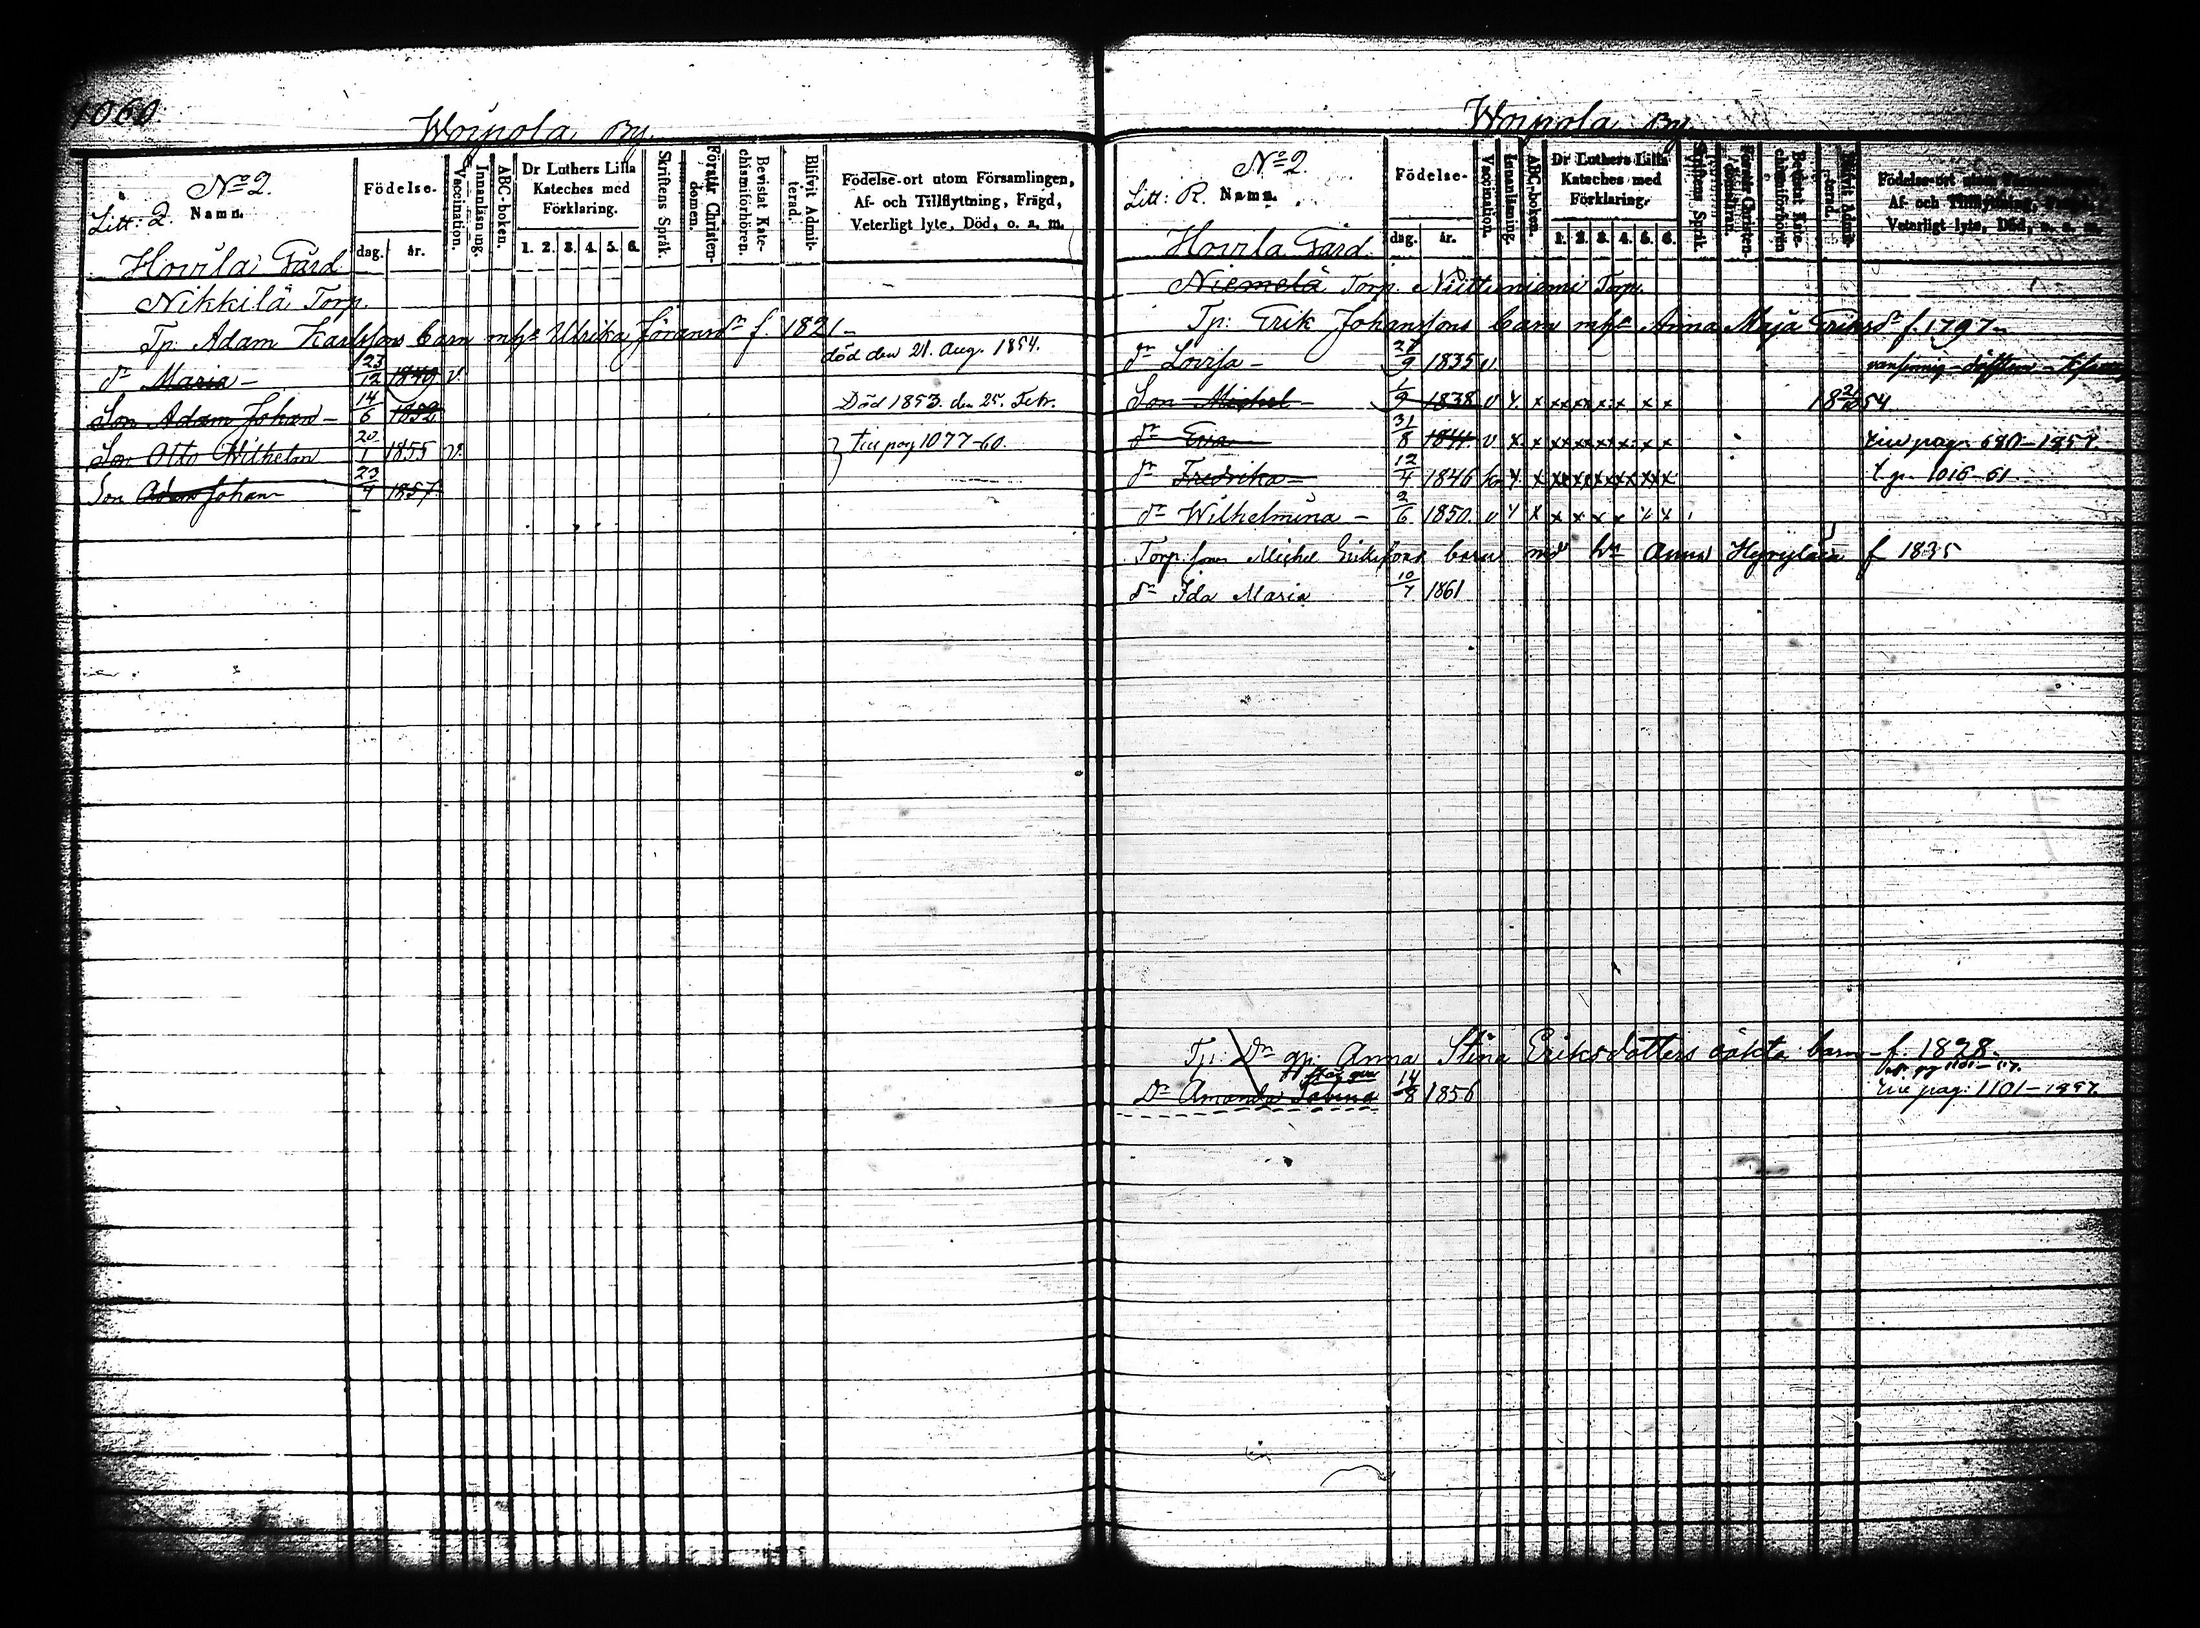 1060
Woipola By
No 2.
Litt: Q.
Namn.
Födelse-
dag.
år.
Vaccination.
Innanläsning.
ABC-boken.
Dr Luthers Lilla
Kateches med
Förklaring.
1. 2. 3. 4. 5. 6.
Skriftens Språk.
Förstår Christen-
domen.
Bevistat Kate-
chismiförhören.
Blifvit Admit-
terad.
Födelse-ort utom Församlingen,
Af- och Tillflyttning, Frägd,
Veterligt lyte, Död, o. s. m.
Hovila Gård
Nikkilä Torp
Tp: Adam Karlssons barn m h:s Ulrika Göransdr f. 1821-
dr Maria - 23/12 1849 v. död den 21. Aug. 1854.
Son Adam Johan - 14/6 1852 Död 1853. den 25. Febr.
Son Otto Wilhelm 20/1 1855 v. } till pag 1077-60.
Son Adam Johan 23/4 1857
Woipola By
No 2.
Litt: R.
Namn.
Födelse-
dag.
år.
Vaccination.
Innanläsning.
ABC-boken.
Dr Luthers Lilla
Kateches med
Förklaring.
1. 2. 3. 4. 5. 6.
Skriftens Språk.
Förstår Christen-
domen.
Bevistat Kate-
chismiförhören.
Blifvit Admit-
terad.
Födelse-ort utom Församlingen,
Af- och Tillflyttning, Frägd,
Veterligt lyte, Död, o. s. m.
Hovila Gård
Niemelä Torp. Niittuniemi Torp.
Tp: Erik Johanssons barn m h:s Anna Maja Eriksdr f. 1797
dr Lovisa - 27/9 1835 v
Son Michel - 1/9 1838 v x x x x x x x x x 1854
dr Eva 31/8 1841 v x x x x x x x x x till pag. 680-1857
dr Fredrika - 12/4 1846 x x x x x x x x x x t. p. 1016-61
dr Wilhelmina - 2/6 1850. v x x x x x x x x
Torp: son Michel Erikssons barn med h:u Anna Hyrylära f 1835
dr Ida Maria 10/7 1861
Tp: Dr Anna Stina Eriksdotters oäkta barn - f. 1828.
Dr Amanda Sabina 14/8 1856 till pag: 1101-1857.